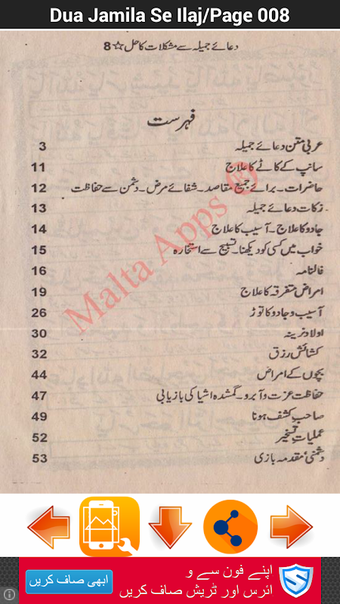 Dua Jamila Se Ilaj/Page 008
دعائے جمیلہ سے مشکلات کا حل ☆ 8
فہرست
عربی متن دعائے جمیلہ 3
سانپ کے کاٹے کا علاج 11
حاضرات ۔ برائے جمیع مقاصد ۔ شفائے مرض ۔ دشمن سے حفاظت 12
زکات دعائے جمیلہ 13
جادو کا علاج ۔ آسیب کا علاج 14
خواب میں کسی کو دیکھنا ۔ تسبیح سے استخارہ 15
فالنامہ 16
امراض متفرقہ کا علاج 19
آسیب و جادو کا توڑ 26
اولاد نرینہ 30
کشائش رزق 32
بچوں کے امراض 44
حفاظت عزت و آبرو ۔ گمشدہ اشیا کی بازیابی 47
صاحب کشف ہونا 49
عملیات تسخیر 52
دشمنی مقدمہ بازی 53
Malta Apps
اپنے فون سے و
ائرس اور ٹریش صاف کریں
ابھی صاف کریں